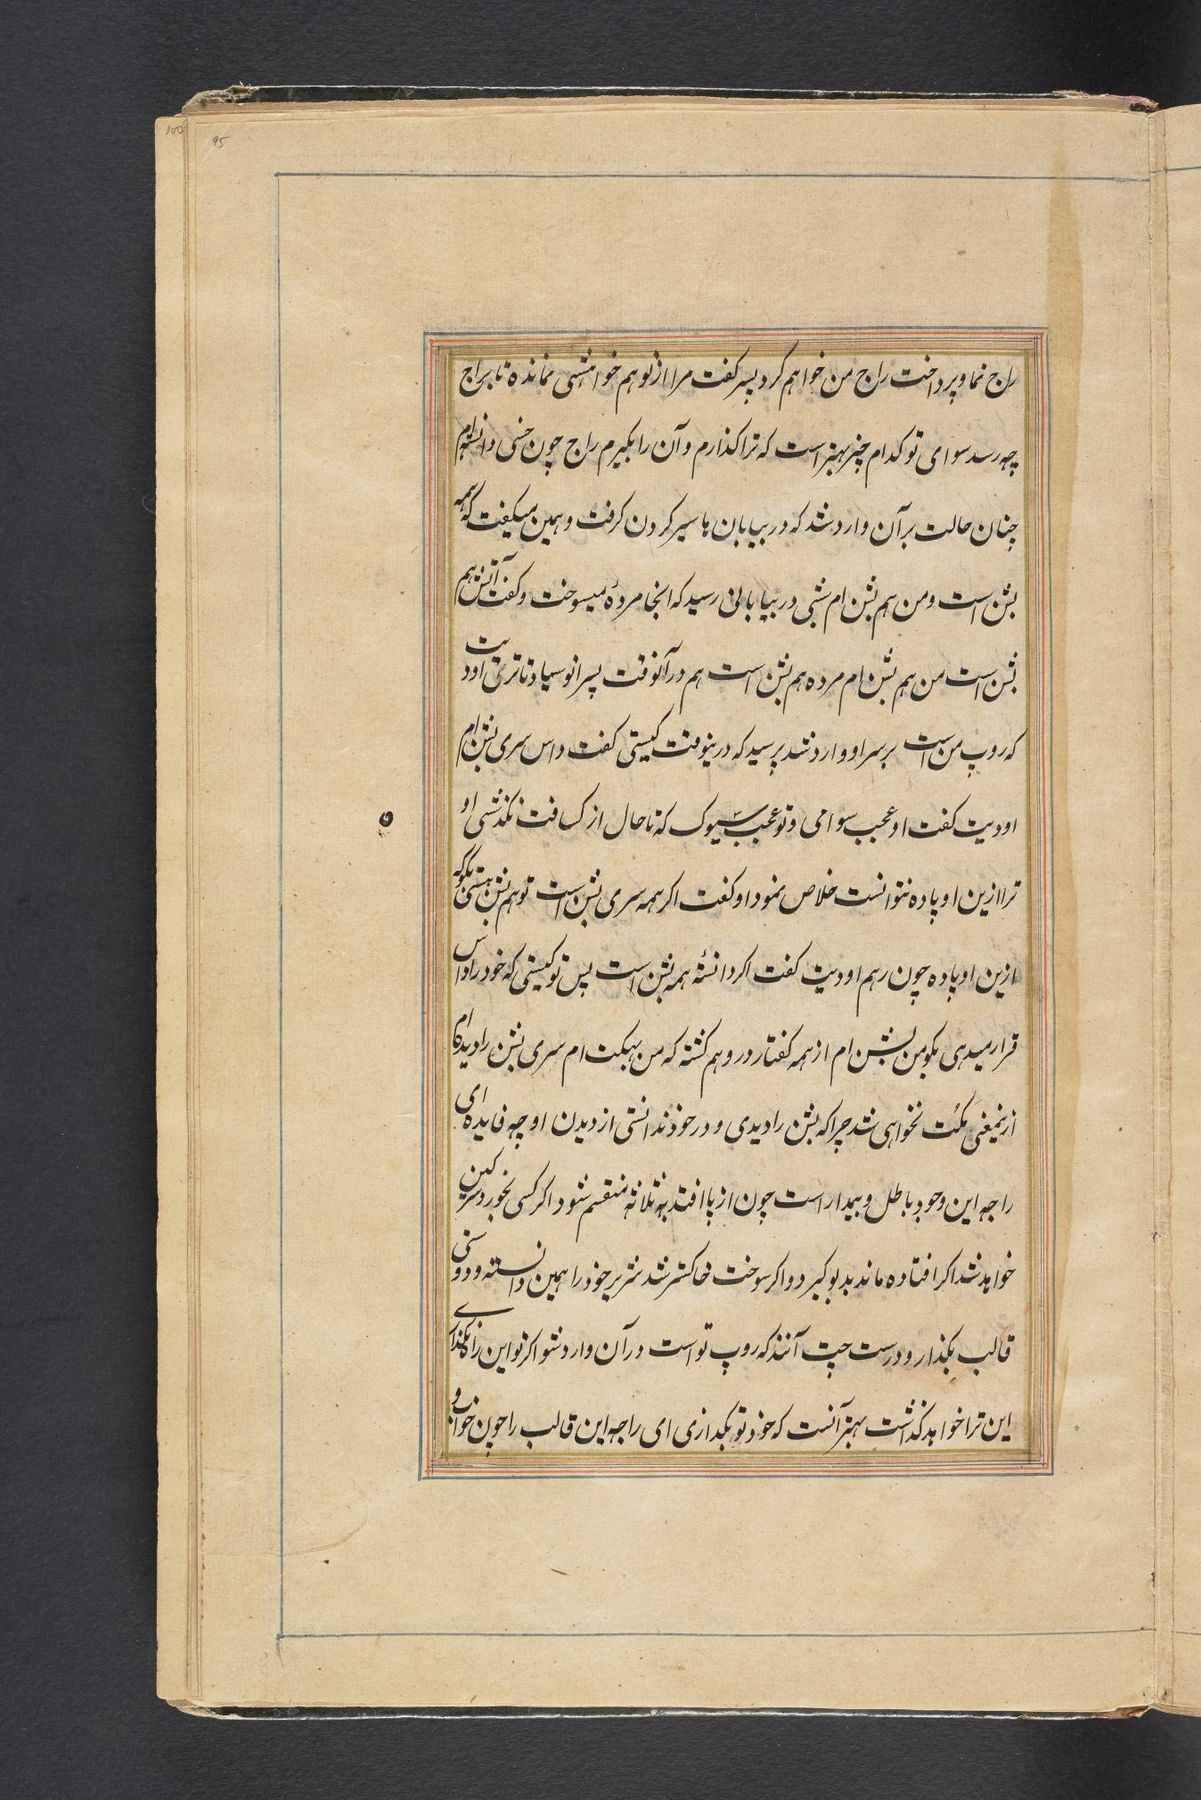 100
95
راج نما و پرداخت راج من خواهم کرد پسر کفت مرا از تو هم خواهشی نمانده تا براج
چه رسد سوای تو کدام چیز بهتر است که ترا کذارم و آن را بکیرم راج چون خسی دانسته‌ام
چنان حالت بر آن وارد شد که در بیابان ها سیر کردن کرفت و همین میکفت که همه
بشن است و من هم بشن ام شبی در بیابانی رسید که آنجا مردهٔ میسوخت و کفت آتش هم
بشن است من هم بشن ام مرده هم بشن است هم در آنوقت پسر انوسیا دتاتری اودیت
که روپ من است بر سر او وارد شد پرسید که درینوقت کیستی کفت داس سری بشن ام
اودیت کفت او عجب سوامی و تو عجب سیوک که تا حال از کسافت نکذشتی او
ترا ازین اوپاده نتوانست خلاص نمود او کفت اکر همه سری بشن است تو هم بشن هستی بکو که
ازین اوپاده چون رهم اودیت کفت اکر دانسته همه بشن است پس تو کیستی که خود را داس
قرار میدهی بکو من بشن ام از همه کفتار در وهم کشته که من بهکت ام سری بشن را دیده‌ام
ازینمعنی مکت نخواهی شد چرا که بشن را دیدی و در خود ندانستی از دیدن او چه فایده ای
راجه این وجود باطل و بیمدار است چون از پا افتد به ثلاثه منقسم شود اکر کسی بخورد سرکین
خواهد شد اکر افتاده ماند بدبو کیرد و اکر سوخت خاکستر شد سریر خود را همین دانسته و دوستی
قالب بکذار و درست چت آنند که روپ تو است در آن وارد شو اکر تو این را نکذاری
این ترا خواهد کذاشت بهتر آنست که خود تو بکذاری ای راجه این قالب را چون خواب و